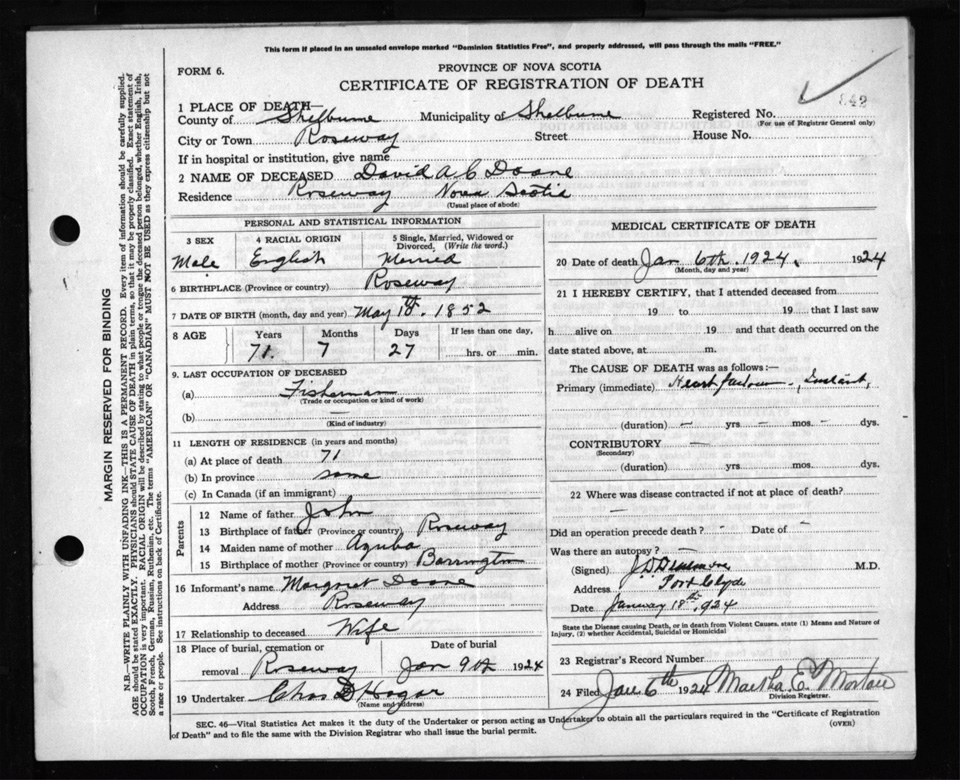 This form if placed in an unsealed envelope marked "Dominion Statistics Free", and properly addressed, will pass through the mails "FREE."
FORM 6.
PROVINCE OF NOVA SCOTIA
CERTIFICATE OF REGISTRATION OF DEATH
842
1 PLACE OF DEATH—
County of Shelburne Municipality of Shelburne Registered No.
(For use of Registrar General only)
City or Town Roseway Street House No.
If in hospital or institution, give name
2 NAME OF DECEASED David A C Doane
Residence Roseway Nova Scotia
(Usual place of abode)
PERSONAL AND STATISTICAL INFORMATION
3 SEX 4 RACIAL ORIGIN 5 Single, Married, Widowed or Divorced. (Write the word.)
Male English Married
6 BIRTHPLACE (Province or country) Roseway
7 DATE OF BIRTH (month, day and year) May 10th 1852
8 AGE Years Months Days If less than one day,
71. 7 27 hrs. or min.
9. LAST OCCUPATION OF DECEASED
(a) Fisherman
(Trade or occupation or kind of work)
(b) —
(Kind of industry)
11 LENGTH OF RESIDENCE (in years and months)
(a) At place of death 71
(b) In province same
(c) In Canada (if an immigrant)
Parents
12 Name of father John
13 Birthplace of father (Province or country) Roseway
14 Maiden name of mother Azuba
15 Birthplace of mother (Province or country) Barrington
16 Informant's name Margret Doane
Address Roseway
17 Relationship to deceased Wife
18 Place of burial, cremation or removal Date of burial
Roseway Jan 9th 1924
19 Undertaker Chas D Hagar
(Name and address)
MEDICAL CERTIFICATE OF DEATH
20 Date of death Jan 6th. 1924. 1924
(Month, day and year)
21 I HEREBY CERTIFY, that I attended deceased from
19 to 19 that I last saw
h alive on 19 and that death occurred on the
date stated above, at m.
The CAUSE OF DEATH was as follows:—
Primary (immediate) Heart failure, Instant,
(duration) — yrs — mos. — dys.
CONTRIBUTORY —
(Secondary)
(duration) yrs mos. dys.
22 Where was disease contracted if not at place of death?
—
Did an operation precede death? - Date of -
Was there an autopsy? —
(Signed) M.D.
Address Port Clyde
Date January 18th, 924
State the Disease causing Death, or in death from Violent Causes, state (1) Means and Nature of Injury, (2) whether Accidental, Suicidal or Homicidal
23 Registrar's Record Number
24 Filed Jan 6th 1924 Martha E. Morton
Division Registrar.
SEC. 46—Vital Statistics Act makes it the duty of the Undertaker or person acting as Undertaker to obtain all the particulars required in the "Certificate of Registration of Death" and to file the same with the Division Registrar who shall issue the burial permit.
(OVER)
MARGIN RESERVED FOR BINDING
N.B.—WRITE PLAINLY WITH UNFADING INK—THIS IS A PERMANENT RECORD. Every item of information should be carefully supplied.
AGE should be stated EXACTLY. PHYSICIANS should STATE CAUSE OF DEATH in plain terms, so that it may be properly classified. Exact statement of
OCCUPATION is very important. RACIAL ORIGIN will be described by stating to what people or tongue the deceased person belonged, whether English, Irish,
Scotch, French, German, Russian, Ruthenian, etc. The terms "AMERICAN" OR "CANADIAN" MUST NOT BE USED as they express citizenship but not
a race or people. See instructions on back of Certificate.